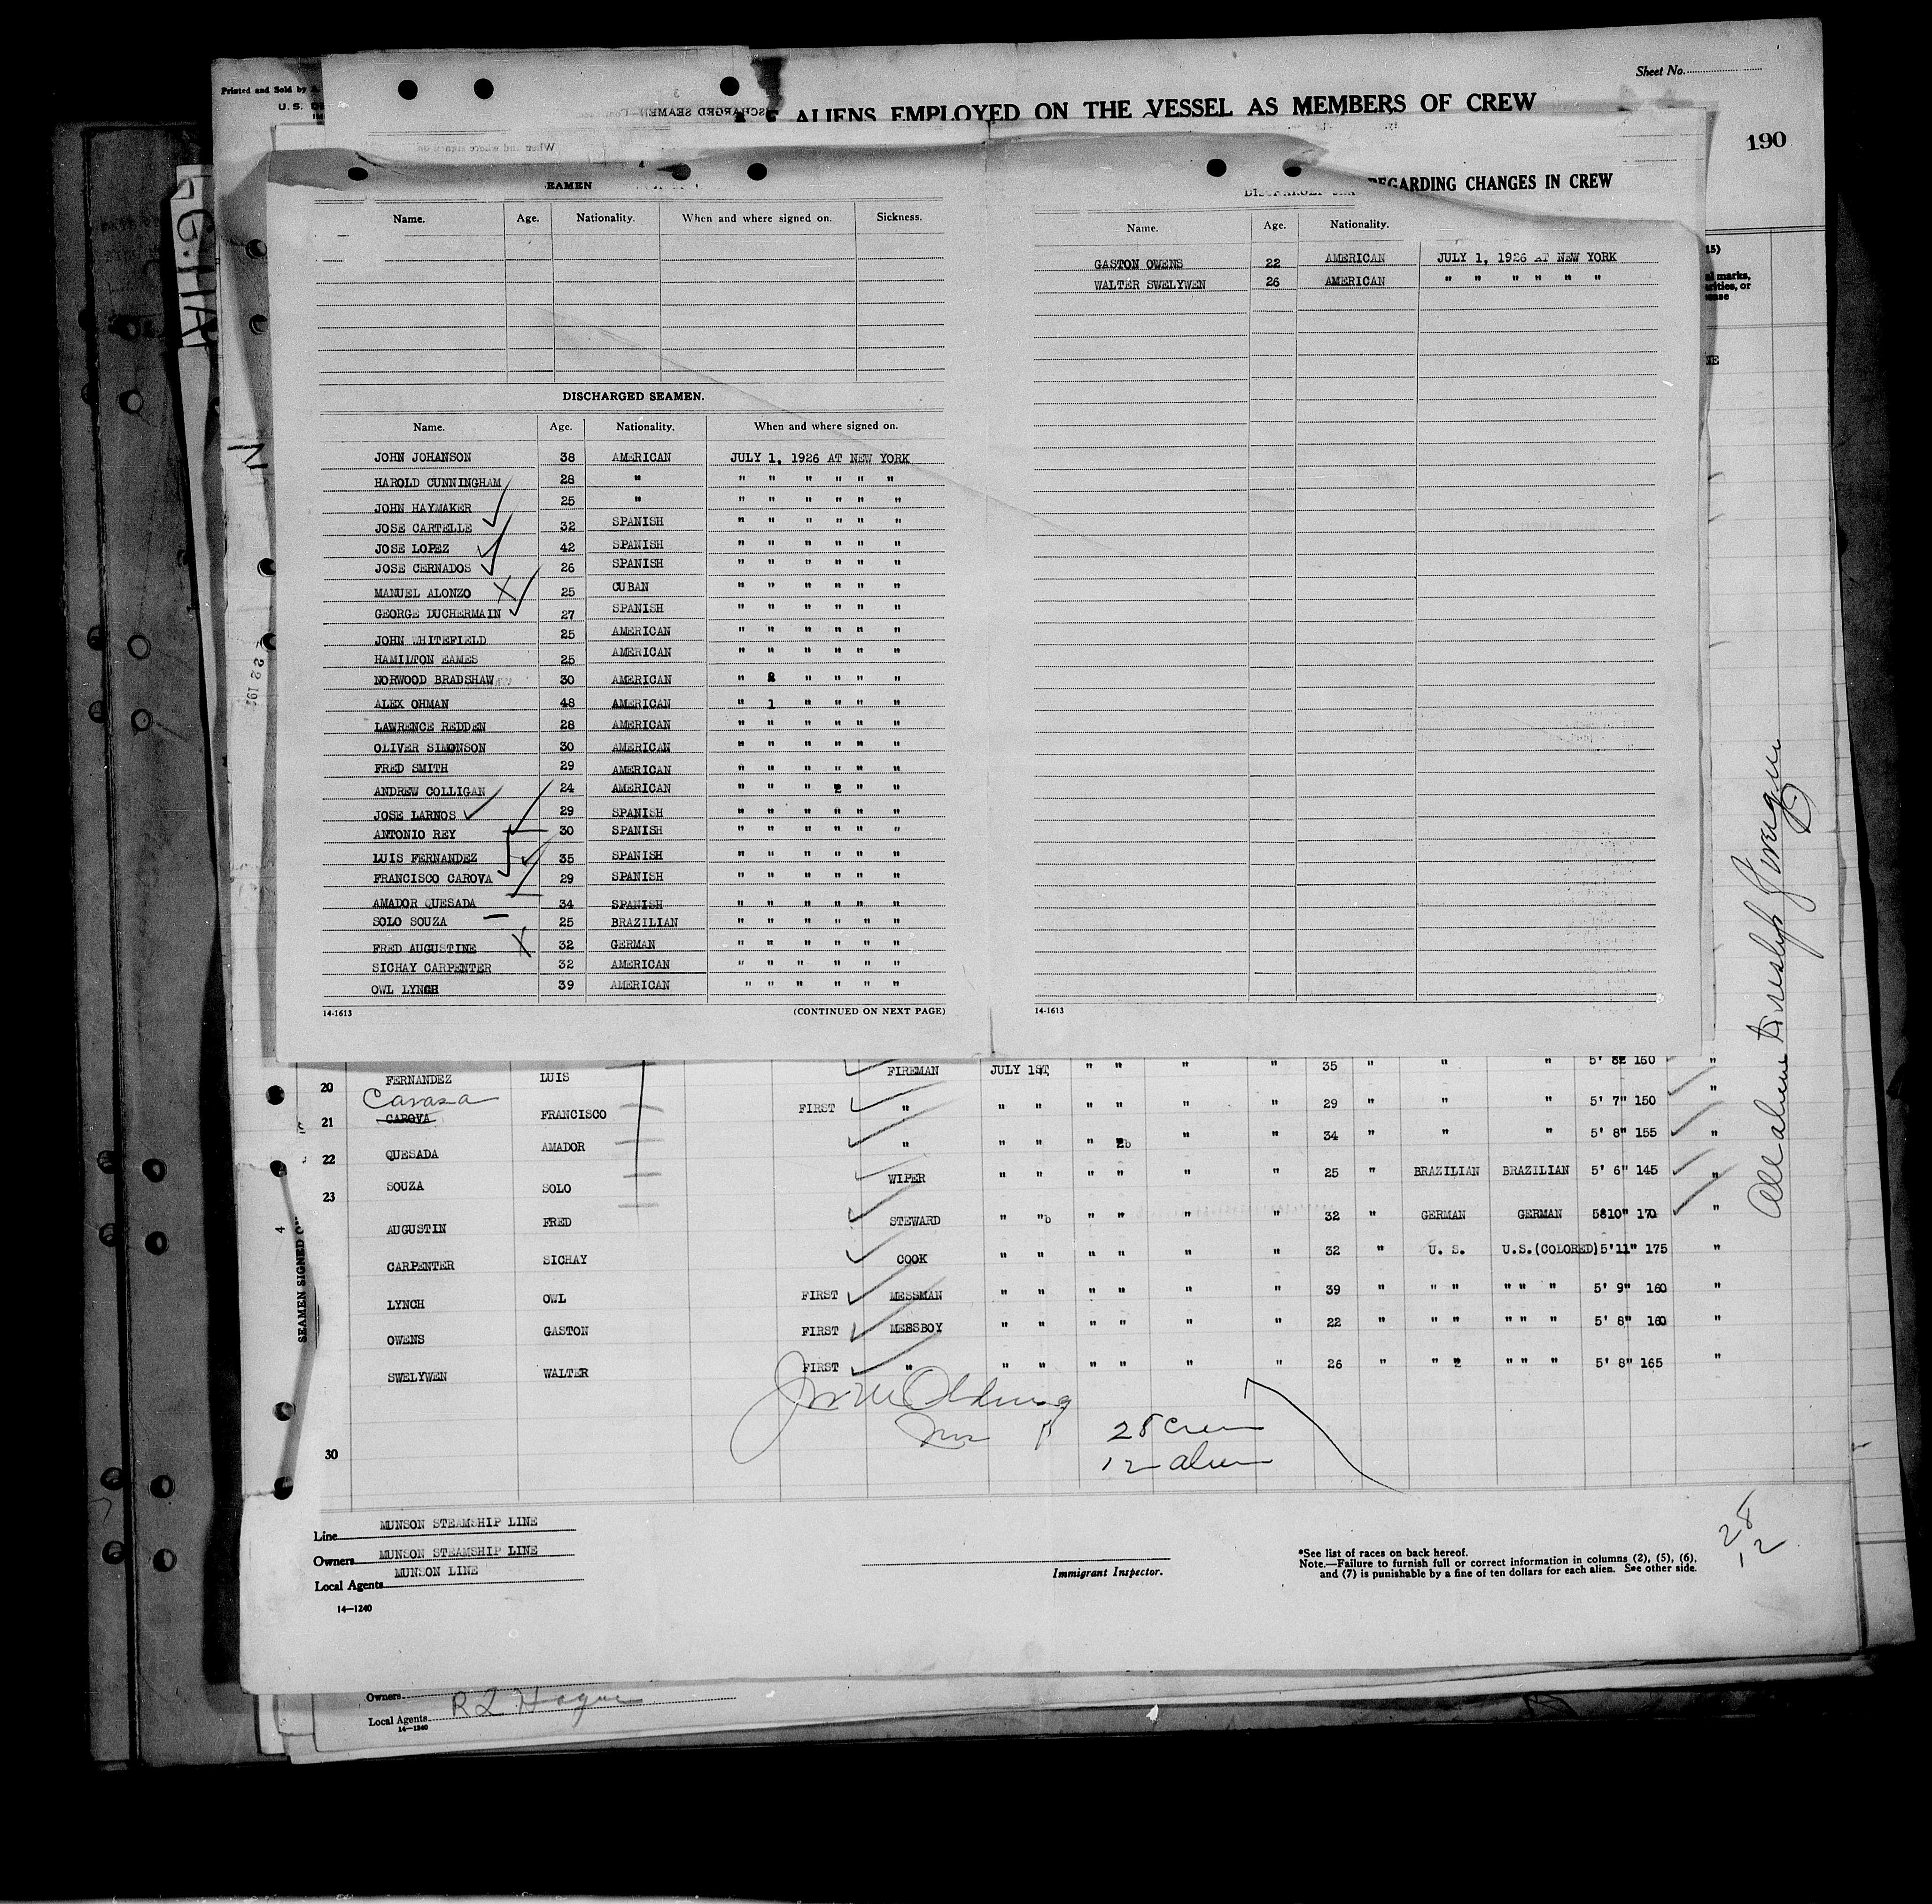 Printed and Sold by
U.S. DE
Sheet No.
ALIENS EMPLOYED ON THE VESSEL AS MEMBERS OF CREW
190
DISCHARGED SEAMEN
When and where signed on
4
SEAMEN
REGARDING CHANGES IN CREW
Name. Age. Nationality. When and where signed on. Sickness.
DISCHARGED SEAMEN.
Name. Age. Nationality. When and where signed on.
JOHN JOHANSON 38 AMERICAN JULY 1, 1926 AT NEW YORK
HAROLD CUNNINGHAM 28 " " " " " " "
JOHN HAYMAKER 25 " " " " " " "
JOSE CARTELLE 32 SPANISH " " " " " "
JOSE LOPEZ 42 SPANISH " " " " " "
JOSE CERNADOS 26 SPANISH " " " " " "
MANUEL ALONZO X 25 CUBAN " " " " " "
GEORGE DUCHERMAIN 27 SPANISH " " " " " "
JOHN WHITEFIELD 25 AMERICAN " " " " " "
HAMILTON EAMES 25 AMERICAN " " " " " "
NORWOOD BRADSHAW 30 AMERICAN " 2 " " " "
ALEX OHMAN 48 AMERICAN " 1 " " " "
LAWRENCE REDDEN 28 AMERICAN " " " " " "
OLIVER SIMONSON 30 AMERICAN " " " " " "
FRED SMITH 29 AMERICAN " " " " " "
ANDREW COLLIGAN 24 AMERICAN " " " " " "
JOSE LARNOS 29 SPANISH " " " " " "
ANTONIO REY 30 SPANISH " " " " " "
LUIS FERNANDEZ 35 SPANISH " " " " " "
FRANCISCO CAROVA 29 SPANISH " " " " " "
AMADOR QUESADA 34 SPANISH " " " " " "
SOLO SOUZA 25 BRAZILIAN " " " " " "
FRED AUGUSTINE X 32 GERMAN " " " " " "
SICHAY CARPENTER 32 AMERICAN " " " " " "
OWL LYNCH 39 AMERICAN " " " " " "
14-1613 (CONTINUED ON NEXT PAGE)
Name. Age. Nationality.
GASTON OWENS 22 AMERICAN JULY 1, 1926 AT NEW YORK
WALTER SWELYWEN 26 AMERICAN " " " " " "
14-1613
20 FERNANDEZ LUIS FIREMAN JULY 1ST, " " " " 35 " " " 5' 8 160 "
Carasa
21 CAROVA FRANCISCO FIRST " " " " " " " 29 " " " 5' 7" 150 "
22 QUESADA AMADOR " " " " " " 34 " " " 5' 8" 155 "
23 SOUZA SOLO WIPER " " " " " " 25 " BRAZILIAN BRAZILIAN 5' 6" 145 "
AUGUSTIN FRED STEWARD " " " " " " 32 " GERMAN GERMAN 5'10" 170 "
CARPENTER SICHAY COOK " " " " " " 32 " U. S. U.S.(COLORED) 5'11" 175 "
LYNCH OWL FIRST MESSMAN " " " " " " 39 " " " " " " 5' 9" 160 "
OWENS GASTON FIRST MESSBOY " " " " " " 22 " " " " " " 5' 8" 160 "
SWELYWEN WALTER FIRST " " " " " " " 26 " " " " " 5' 8" 165 "
28 Crew
12 alien
30
SEAMEN SIGNED
4
Line MUNSON STEAMSHIP LINE
Owners MUNSON STEAMSHIP LINE
Local Agents MUNSON LINE
14-1240
Immigrant Inspector.
*See list of races on back hereof.
Note.—Failure to furnish full or correct information in columns (2), (5), (6),
and (7) is punishable by a fine of ten dollars for each alien. See other side.
28
12
Owners
Local Agents R L Hague
14-1240